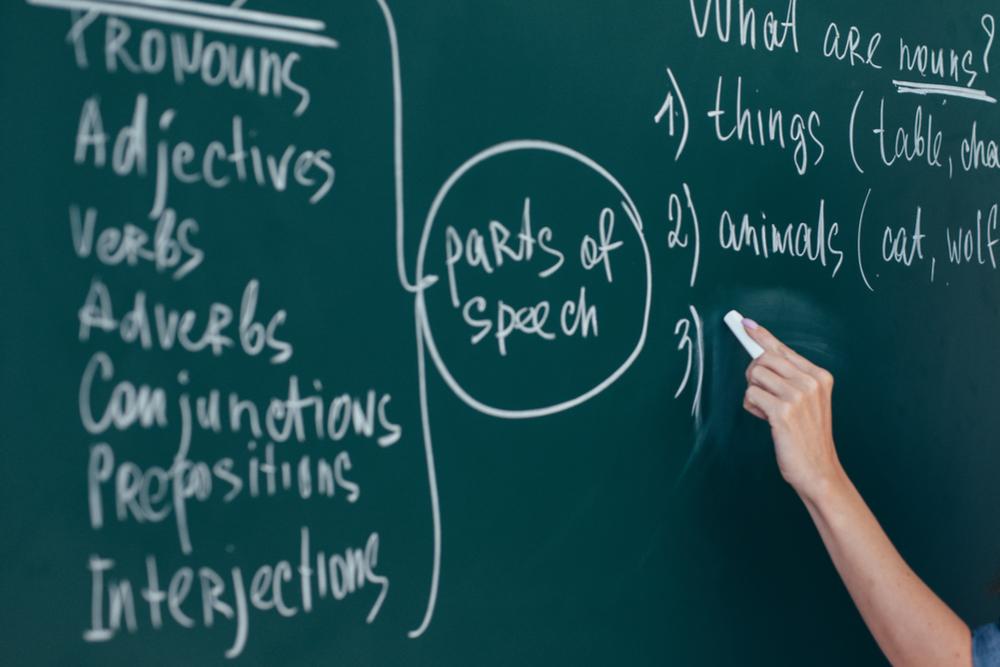 Pronouns
Adjectives
Verbs
Adverbs
Conjunctions
Prepositions
Interjections
parts of
speech
What are nouns?
1) things (table,
2) animals (cat, wolf
3)